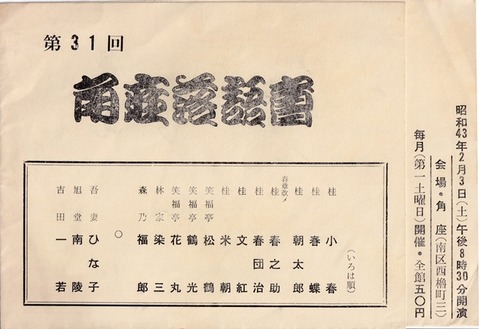 第31回
角座落語會
(いろは順)
桂 小春
桂 春蝶
春章改メ
桂 朝太郎
桂 春之助
桂 春団治
桂 文紅
桂 米朝
笑福亭 松鶴
笑福亭 鶴光
笑福亭 花丸
林家 染三
森乃 福郎
○
吾妻 ひな子
旭堂 南陵
吉田 一若
昭和43年2月3日(土)午後8時30分開演
会場・角座(南区西櫓町三)
毎月(第一土曜日)開催・全館五〇円